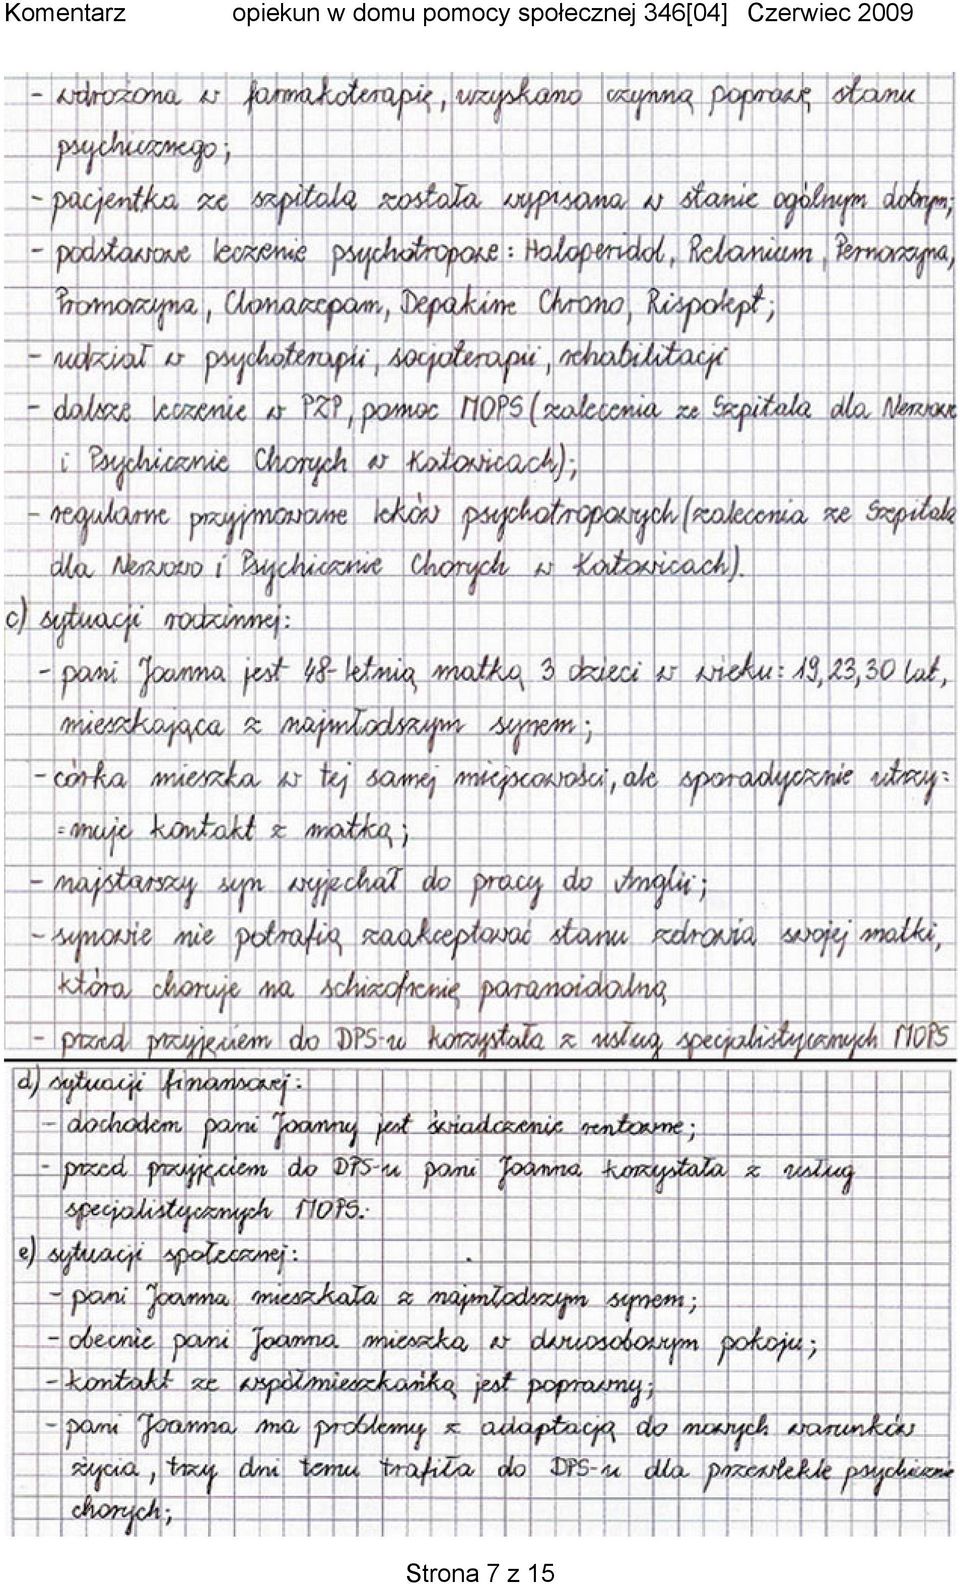 Komentarz opiekun w domu pomocy społecznej 346[04] Czerwiec 2009
- wdrożona w farmakoterapię, uzyskano czynną poprawę stanu
psychicznego;
- pacjentka ze szpitala została wypisana w stanie ogólnym dobrym;
- podstawowe leczenie psychotropowe: Haloperidol, Relanium, Pernazyna,
Promazyna, Clonazepam, Depakine Chrono, Rispolept;
- udział w psychoterapii, socjoterapii, rehabilitacji
- dalsze leczenie w PZP, pomoc MOPS (zalecenia ze Szpitala dla Nerwowo
i Psychicznie Chorych w Katowicach);
- regularne przyjmowane leków psychotropowych (zalecenia ze Szpitala
dla Nerwowo i Psychicznie Chorych w Katowicach).
c) sytuacji rodzinnej:
- pani Joanna jest 48-letnią matką 3 dzieci w wieku: 19, 23, 30 lat,
mieszkająca z najmłodszym synem;
- córka mieszka w tej samej miejscowości, ale sporadycznie utrzy=
=muje kontakt z matką;
- najstarszy syn wyjechał do pracy do Anglii;
- synowie nie potrafią zaakceptować stanu zdrowia swojej matki,
która choruje na schizofrenię paranoidalną
- przed przyjęciem do DPS-u korzystała z usług specjalistycznych MOPS
d) sytuacji finansowej:
- dochodem pani Joanny jest świadczenie rentowne;
- przed przyjęciem do DPS-u pani Joanna korzystała z usług
specjalistycznych MOPS.
e) sytuacji społecznej:
- pani Joanna mieszkała z najmłodszym synem;
- obecnie pani Joanna mieszka w dwuosobowym pokoju;
- kontakt ze współmieszkańką jest poprawny;
- pani Joanna ma problemy z adaptacją do nowych warunków
życia, trzy dni temu trafiła do DPS-u dla przewlekle psychicznie
chorych;
Strona 7 z 15